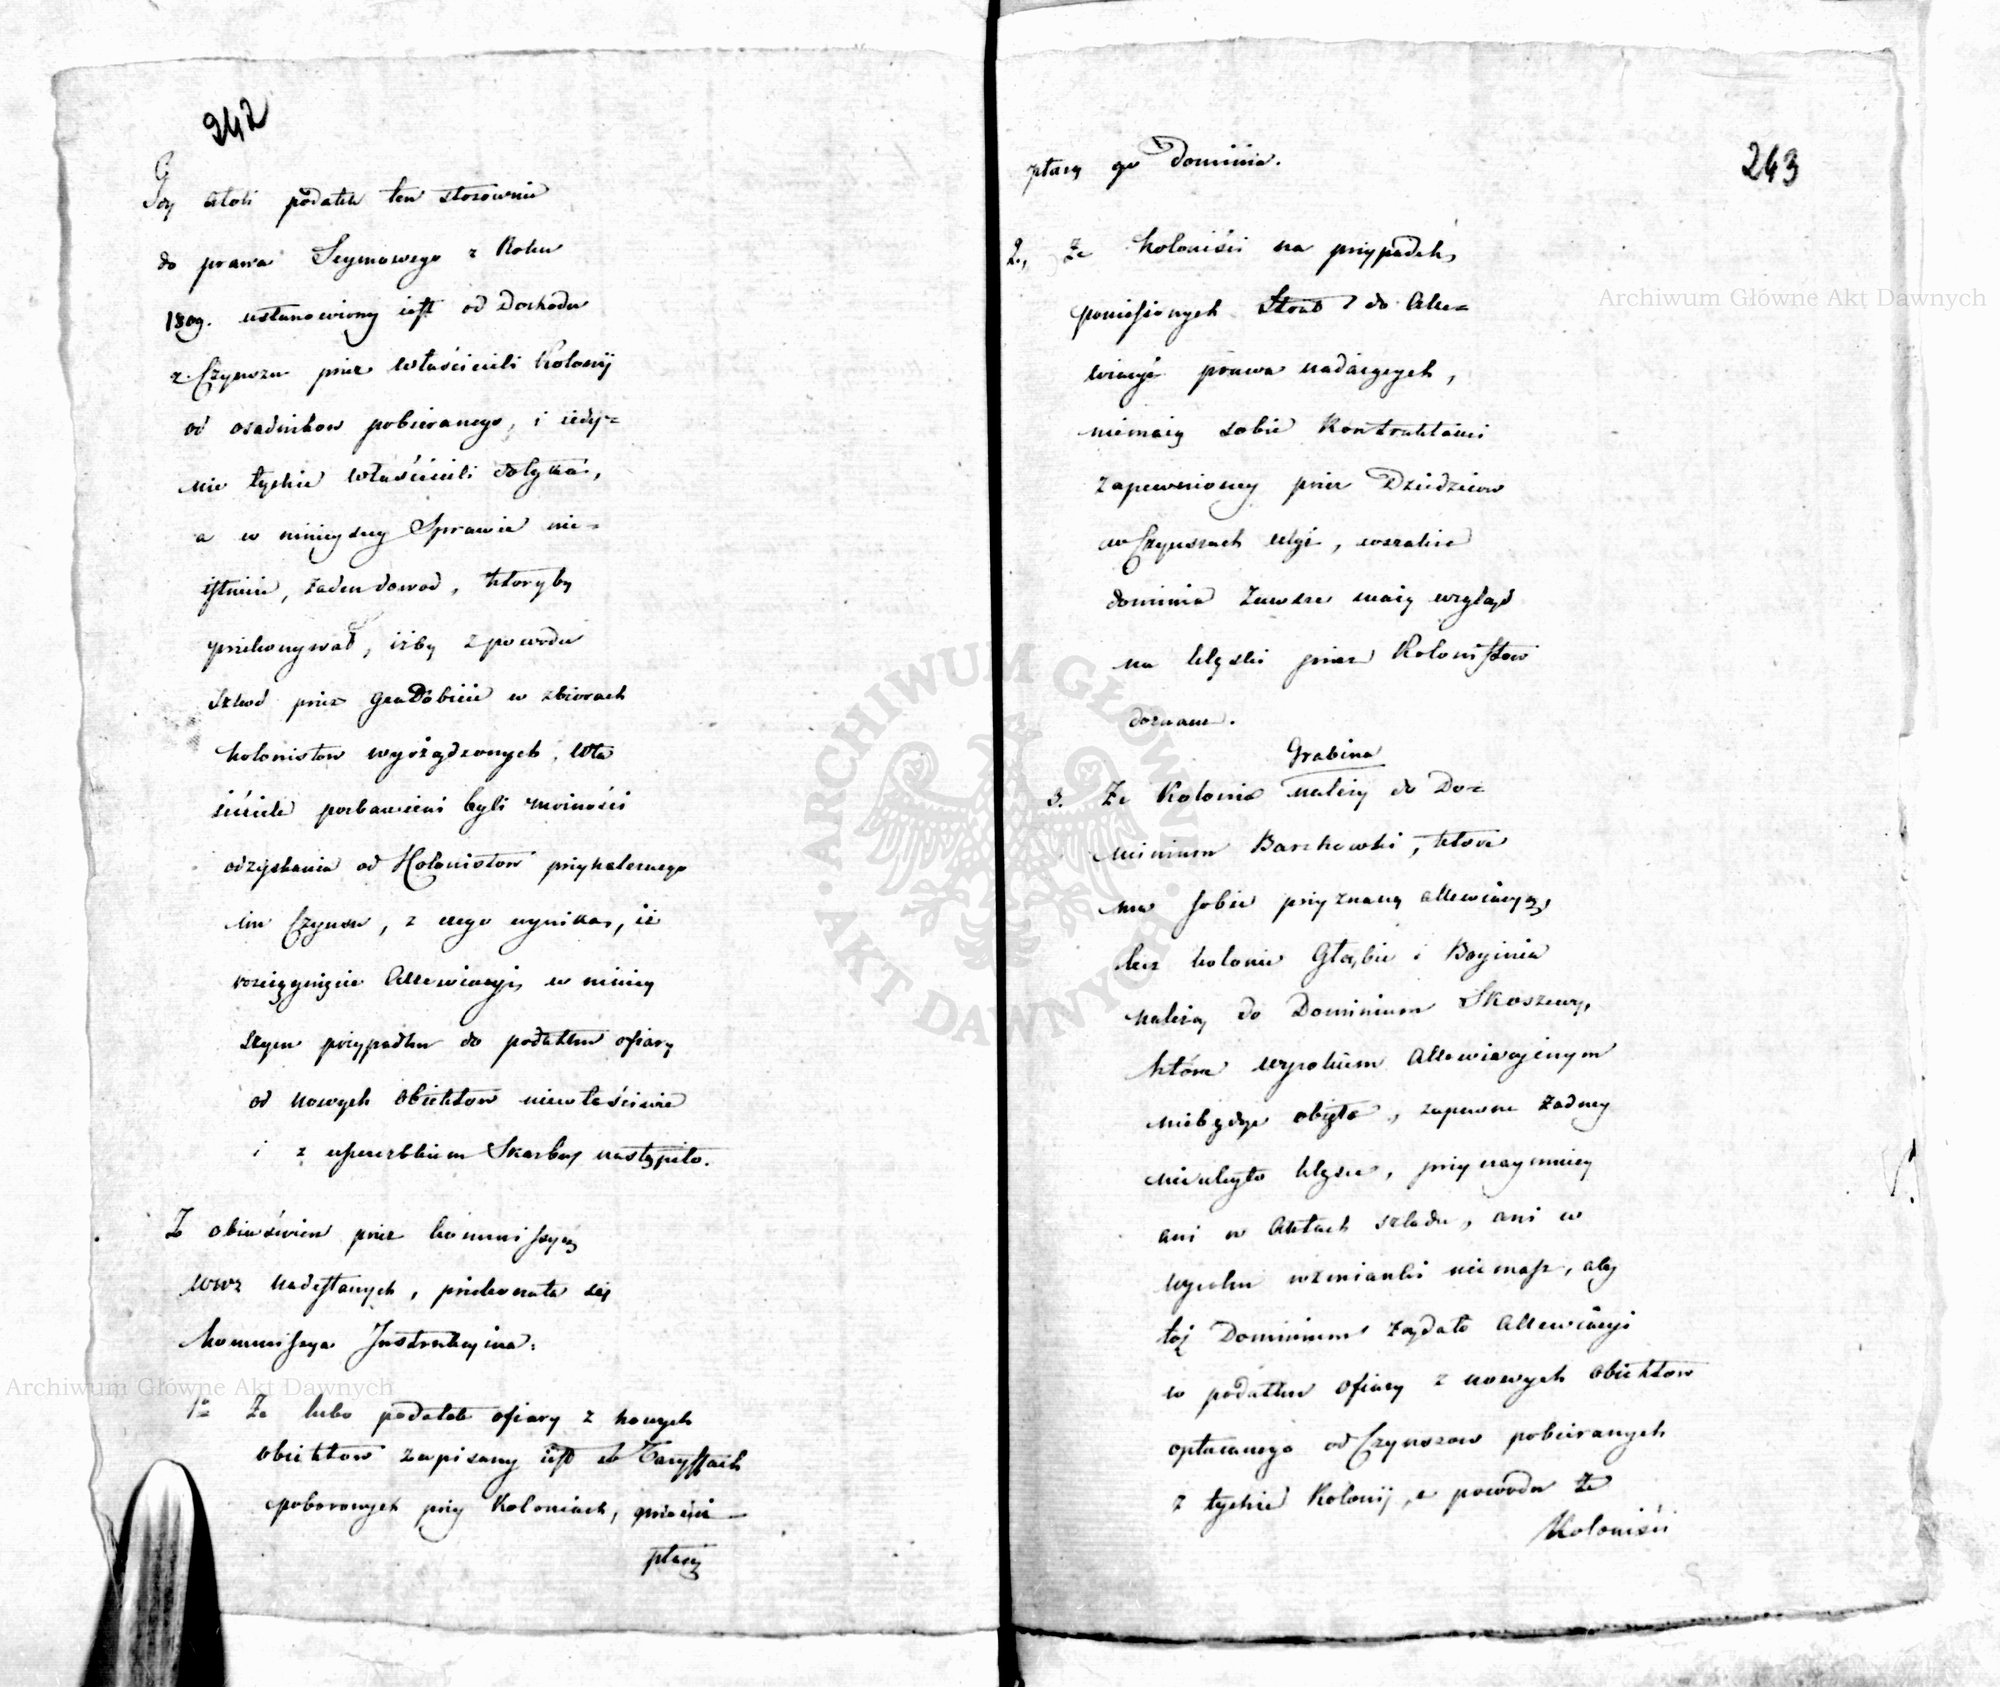 242
Gdy atoli podatek ten stosownie
do prawa Seymowego z Roku
1809. ustanowiony iest od Dochodu
z Czynszu przez właścicieli Kolonij
od osadnikow pobieranego, i iedy=
nie tychże właścicieli dotyka,
a w ninieyszey Sprawie nie=
istnieie, żaden dowod, któryby
przekonywał, iżby z powodu
Szkod przez gradobicie w zbiorach
kolonistow wyrządzonych, Wła
ściciele pozbawieni byli możności
odzyskania od Kolonistow przynależnego
im Czynszu, z czego wynika, iż
rozciągnięcie Allewiacyi, w niniey
szym przypadku do podatku ofiary
od nowych obiektow niewłaściwie
i z uszczerbkiem Skarbu nastąpiło.
Z obiaśnien przez Kommissyą
Wwz nadesłanych, przekonała się
Kommissya Instrukcyina.
1º Ze lubo podatek ofiary z nowych
obiektow zapisany iest w Taryffach
poborowych przy Koloniach, przecież
płacą
243
płacą go Dominia.
2., Ze Koloniści na przypadek,
poniesionych Strat do Alle=
wiacyi prawa nadaiących,
niemaią sobie Kontraktami
zapewnioney przez Dziedzicow
w Czynszach ulgi, wszakże
dominia zawsze maią wzgląd
na klęski przez Kolonistow
doznane.
Grabina
3. Ze Kolonia należy do Do=
minium Barchowski, które
ma sobie przyznaną allewiacyą,
lecz kolonie Głąbie i Boginia
należą do Dominium Skoszewy,
które wypokiem Allewiacyinym
niebędąc obięte, zapewne żadney
nieuległo klęsce, przynaymniey
ani w Aktach szladu, ani w
wyroku wzmianki niemasz, aby
toż Dominium żądało Allewiacyi
w podatku ofiary z nowych obiektow
opłacanego od Czynszow pobieranych
z tychże Kolonij, z powodu że
Koloniści